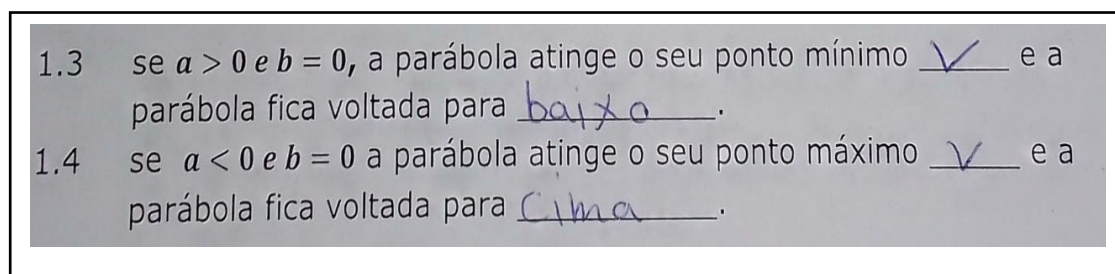 1.3 se a > 0 e b = 0, a parábola atinge o seu ponto mínimo V e a
parábola fica voltada para baixo.
1.4 se a < 0 e b = 0 a parábola atinge o seu ponto máximo V e a
parábola fica voltada para Cima.